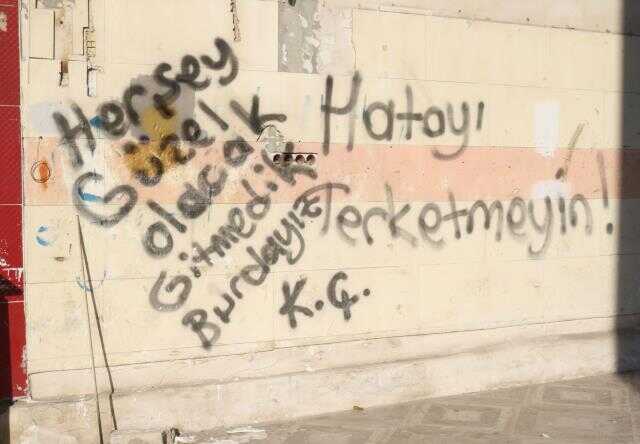 Herşey
Güzel
olacak
Gitmedik
Burdayız
Hatayı
Terketmeyin!
K.Ç.